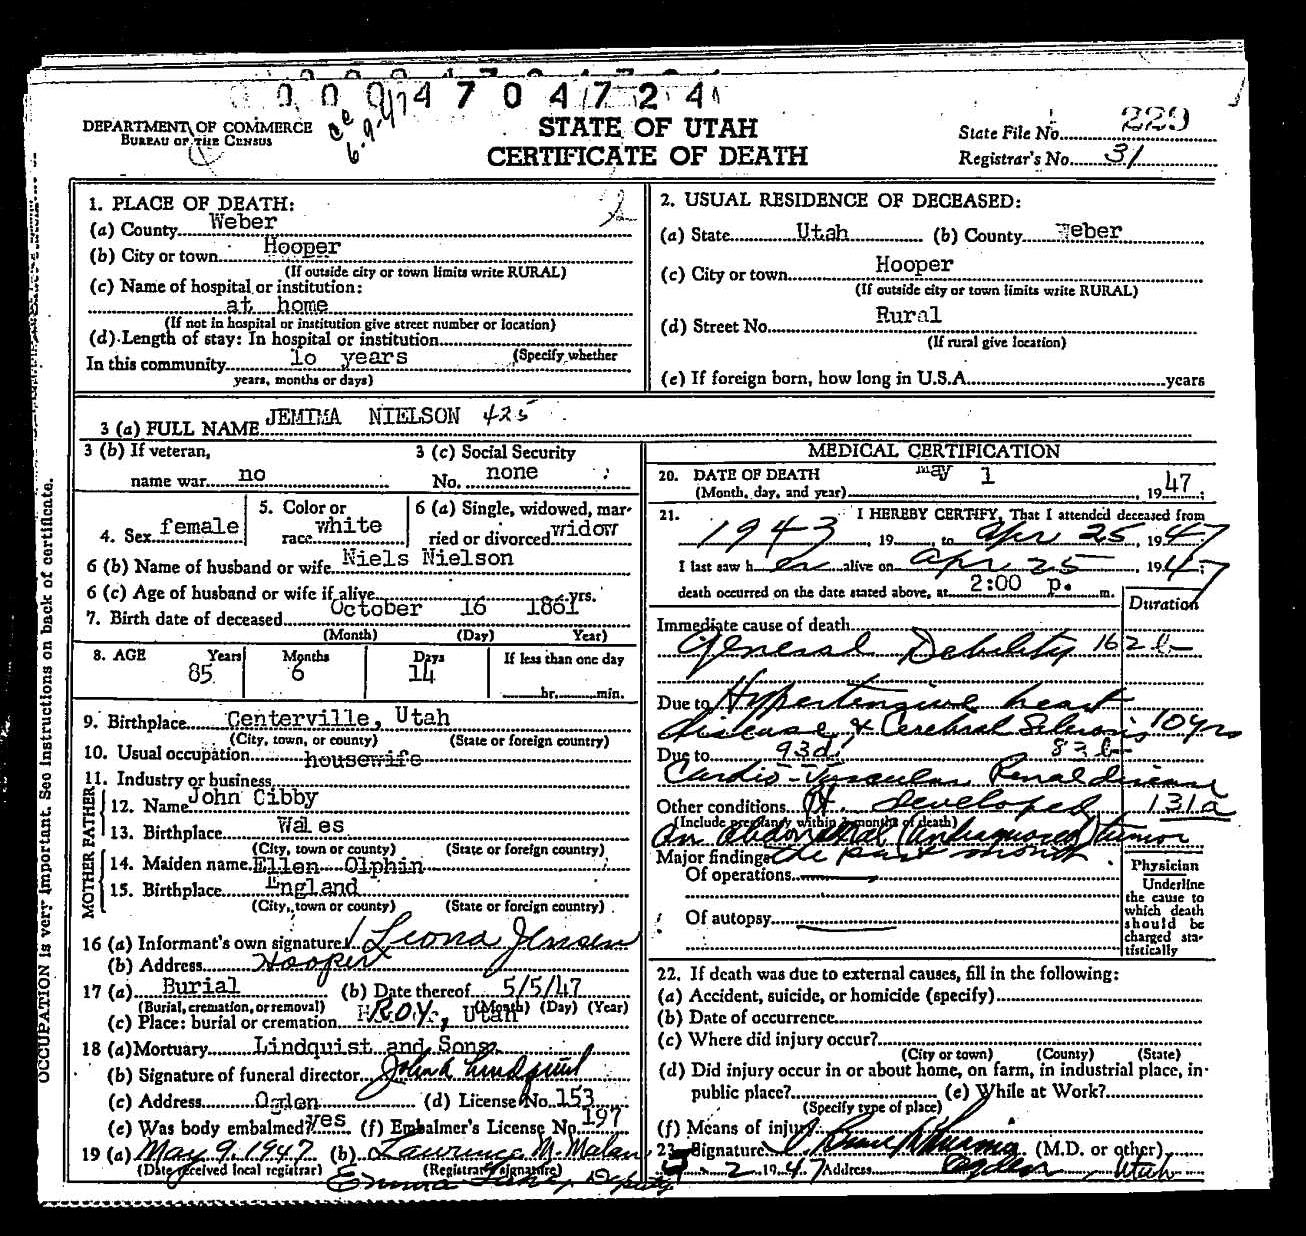 0004704724
DEPARTMENT OF COMMERCE
BUREAU OF THE CENSUS
6-9-47
STATE OF UTAH
CERTIFICATE OF DEATH
State File No. 229
Registrar's No. 31
1. PLACE OF DEATH:
(a) County Weber
(b) City or town Hooper
(If outside city or town limits write RURAL)
(c) Name of hospital or institution:
at home
(If not in hospital or institution give street number or location)
(d) Length of stay: In hospital or institution
In this community 10 years (Specify whether
years, months or days)
2. USUAL RESIDENCE OF DECEASED:
(a) State Utah (b) County Weber
(c) City or town Hooper
(If outside city or town limits write RURAL)
(d) Street No. Rural
(If rural give location)
(e) If foreign born, how long in U.S.A. years
3 (a) FULL NAME JEMIMA NIELSON 425
3 (b) If veteran,
name war no
3 (c) Social Security
No. none
4. Sex female
5. Color or
race white
6 (a) Single, widowed, mar-
ried or divorced widow
6 (b) Name of husband or wife Niels Nielson
6 (c) Age of husband or wife if alive yrs.
7. Birth date of deceased October 16 1861
(Month) (Day) Year)
8. AGE Years Months Days If less than one day
85 6 14 hr. min.
9. Birthplace Centerville, Utah
(City, town, or county) (State or foreign country)
10. Usual occupation housewife
11. Industry or business
FATHER
12. Name John Cibby
13. Birthplace Wales
(City, town or county) (State or foreign country)
MOTHER
14. Maiden name Ellen Olphin
15. Birthplace England
(City, town or county) (State or foreign country)
16 (a) Informant's own signature Leona Jensen
(b) Address Hooper
17 (a) Burial (b) Date thereof 5/5/47
(Burial, cremation, or removal) (Month) (Day) (Year)
(c) Place: burial or cremation ROY, Utah
18 (a) Mortuary Lindquist and Sons.
(b) Signature of funeral director John A Lindquist
(c) Address Ogden (d) License No. 153
(e) Was body embalmed? yes (f) Embalmer's License No. 197
19 (a) May 9, 1947 (b) Lawrence M. Malan
(Date received local registrar) (Registrar's signature)
Emma Deputy
MEDICAL CERTIFICATION
20. DATE OF DEATH May 1 1947
(Month, day, and year)
21. I HEREBY CERTIFY, That I attended deceased from
1943, 19 , to Apr 25, 1947
I last saw her alive on Apr 25 1947;
death occurred on the date stated above, at 2:00 p. m.
Duration
Immediate cause of death
General Debility 162 b
Due to Hypertensive heart
disease & Cerebral Sclerosis 10 yrs
Due to 93d 83 b
Cardio-Vascular Renal disease
Other conditions Pt. developed 131a
(Include pregnancy within 3 months of death)
an abdominal (undiagnosed) tumor
Major findings the past month.
Of operations
Of autopsy
Physician
Underline
the cause to
which death
should be
charged sta-
tistically
22. If death was due to external causes, fill in the following:
(a) Accident, suicide, or homicide (specify)
(b) Date of occurrence
(c) Where did injury occur?
(City or town) (County) (State)
(d) Did injury occur in or about home, on farm, in industrial place, in
public place? (e) While at Work?
(Specify type of place)
(f) Means of injury
23. Signature (M.D. or other)
2 1947 Address Ogden, Utah
OCCUPATION is very important. See instructions on back of certificate.